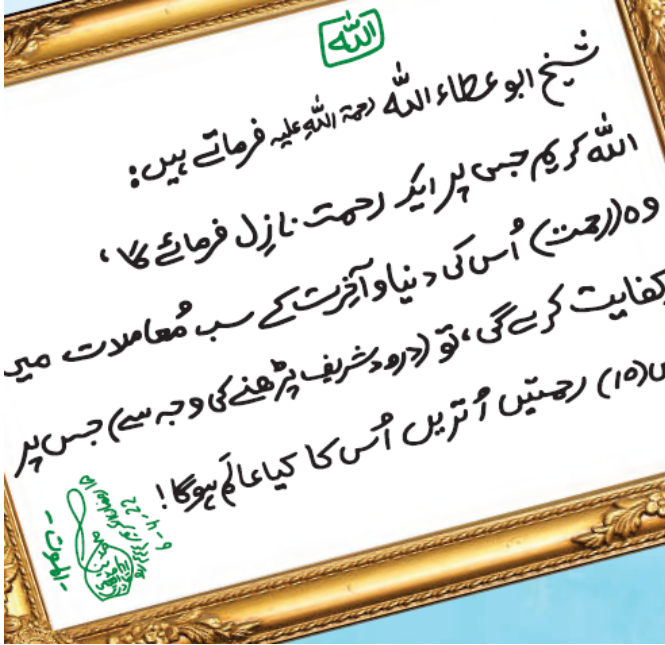 اللہ
شیخ ابو عطاء اللہ رحمۃ اللہِ علیہ فرماتے ہیں:
اللہ کریم جس پر ایک رحمت نازِل فرمائے گا،
وہ (رحمت) اُس کی دنیا و آخِرت کے سب مُعاملات میں
کفایت کرے گی، تو (درود شریف پڑھنے کی وجہ سے) جس پر
(10) رحمتیں اُتریں اُس کا کیا عالَم ہوگا!
22-4-9